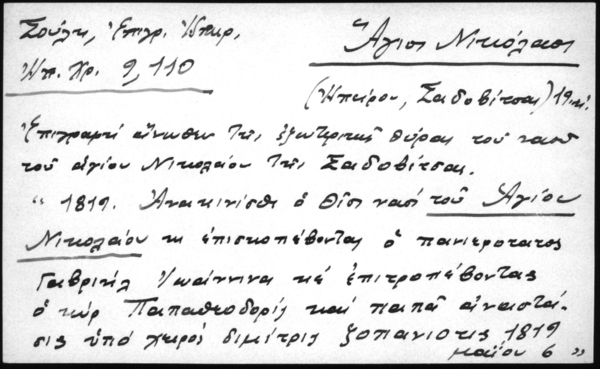 Σούλη, Ἐπιγρ. Ἠπείρ,
Ἠπ. Χρ. 9, 110
Ἅγιος Νικόλαος
(Ἠπείρου, Σαδοβίτσας) 19 αἰ.
Ἐπιγραφή ἄνωθεν τῆς ἐξωτερικῆς θύρας τοῦ ναοῦ
τοῦ ἁγίου Νικολάου τῆς Σαδοβίτσας.
" 1819. Ἀνακινίσθι ὁ θῖος ναός τοῦ Ἁγίου
Νικολαίου κι ἐπισκοπέβοντας ὁ πανιεροτατος
Γαβριήλ Ἰωάννινα κέ ἐπιτροπέβοντας
ὁ κύρ Παπαθεοδορίς καί παπᾶ ἀναστά-
σις ὑπό χειρός διμίτρις 1819
μαΐου 6 "